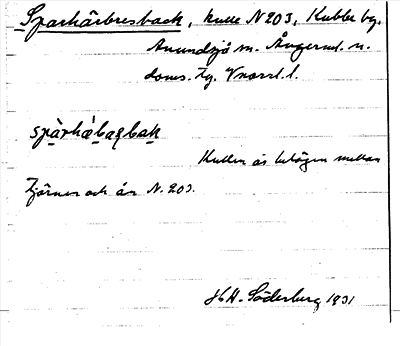 Sparhärbresback, kulle N 203, Kubbe by.
Anundsjö sn. Ångerml. n.
doms. tg. Vnorrl. l.
spàrhá̀basbak
Kullen är belägen mellan
tjärnen och ån N. 203.
H. Söderberg 1931